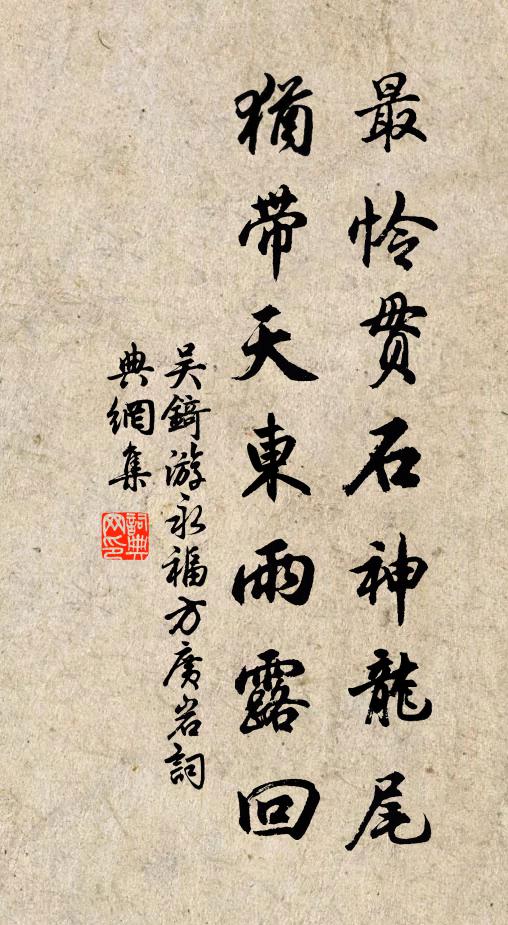 最怜贯石神龍尾
猶带天東雨露回
吴錡游永福方廣岩詞
典網集
詞典
网印